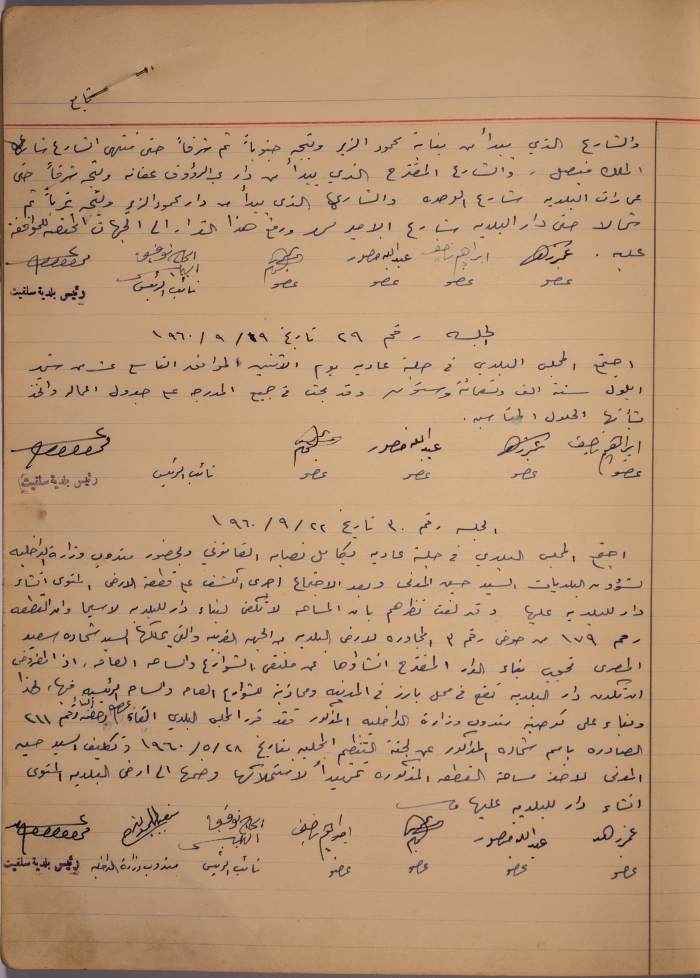 تابع
والشارع الذي يبدأ من بناية محمود الزير ويتجه جنوباً ثم شرقاً حتى منتهى الشارع شارع
الملك فيصل، والشارع المقترح الذي يبدأ من دار عبد الرؤوف عفانه ويتجه شرقاً حتى
عمارات البلديه شارع الوحده والشارع الذي يبدأ من دار محمود الزير ويتجه غرباً ثم
شمالا حتى دار البلديه شارع الامير ورفع هذا القرار الى الجهات المختصه للموافقة
عليه.
عمر زهد ابراهيم نصيف عبدالله منصور الحاج توفيق
عضو عضو عضو عضو نائب الرئيس رئيس بلدية سلفيت
الجلسه رقم ٢٩ تاريخ ١٩٦٠/٩/١٩
اجتمع المجلس البلدي في جلسة عاديه يوم الاثنين الموافق التاسع عشر من شهر
ايلول سنة الف وتسعمائة وستون وقد بحث في جميع المدرجه على جدول اعماله واتخذ
بشأنها الحلول المناسبه.
ابراهيم نصيف عمر زهد عبدالله منصور
عضو عضو عضو عضو نائب الرئيس رئيس بلدية سلفيت
الجلسه رقم ٣٠ تاريخ ١٩٦٠/٩/٢٢
اجتمع المجلس البلدي في جلسة عاديه بكامل نصابه القانوني وبحضور مندوب وزارة الداخليه
لشؤون البلديات السيد حسين المفتي وبعد الاجتماع اجرى الكشف على قطعة الارض المنوى انشاء
دار للبلديه عليها وقد لفت نظرهم بان المساحه لا تكفي لبناء دار للبلديه لاسيما وان القطعه
رقم ١٧٩ من حوض رقم ٣ المجاوره لارض البلديه من الجهه الغربيه والتي يملكها السيد شحاده سعيد
المصري تحجب بناء الدار المقترح انشاؤها عن ملتقى الشوارع والساحه العامه، اذ المفروض
ان تكون دار البلديه تقع في محل بارز في المدينه ومحاذية للشوارع العامه والساحه الرئيسيه فيها، لهذا
وبناء على توصية مندوب وزارة الداخليه المذكور فقد قرر المجلس البلدي الغاء رخصة البناء رقم ٢١١
الصادره باسم شحاده المذكور عن لجنة التنظيم المحلية بتاريخ ١٩٦٠/٥/٢٨ وتكليف السيد حسين
المفتي لاخذ مساحة القطعه المذكوره تمهيداً لاستملاكها وضمها الى ارض البلديه المنوى
انشاء دار للبلديه عليها
عمر زهد عبدالله منصور ابراهيم نصيف الحاج توفيق
عضو عضو عضو عضو نائب الرئيس مندوب وزارة الداخليه رئيس بلدية سلفيت